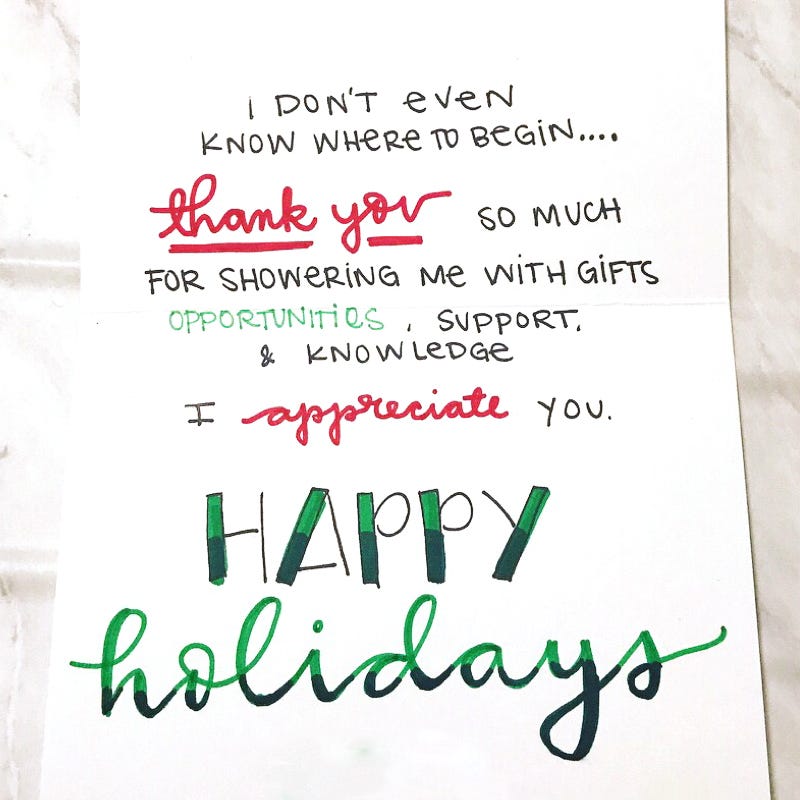 I DON'T EVEN
KNOW WHERE TO BEGIN....
thank you SO MUCH
FOR SHOWERING ME WITH GIFTS
OPPORTUNITIES, SUPPORT,
& KNOWLEDGE
I appreciate YOU.
HAPPY
holidays